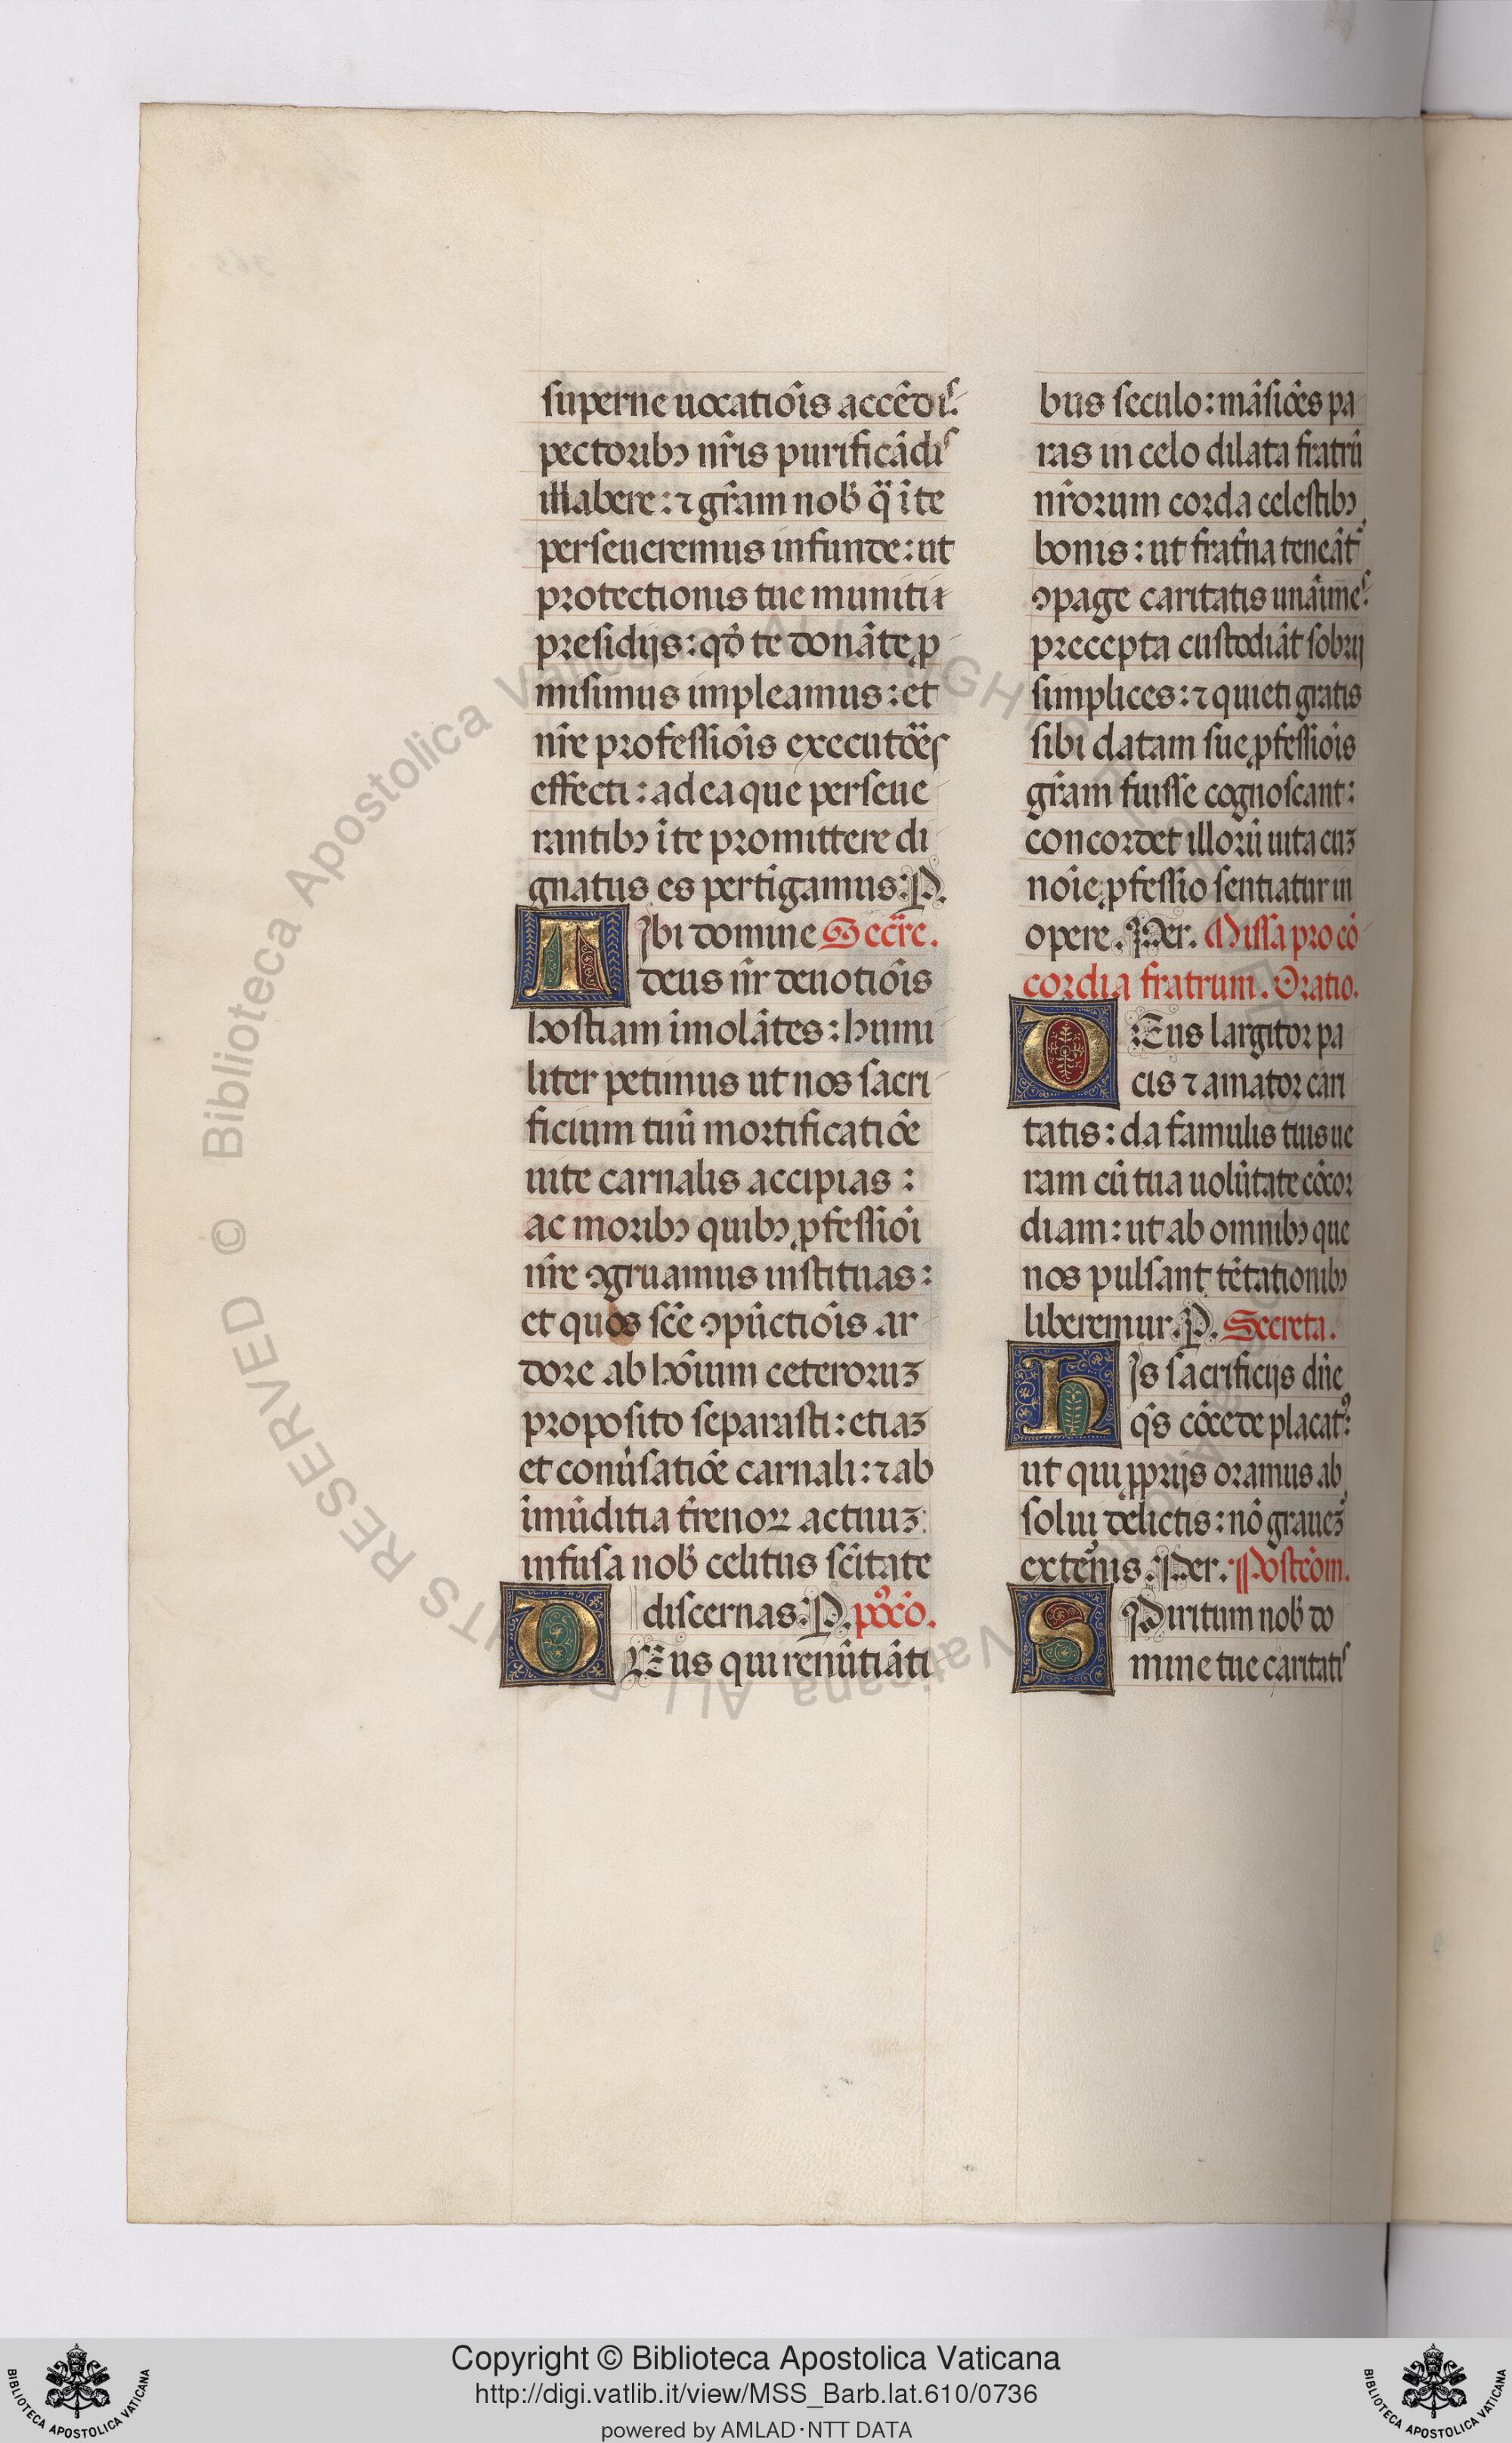 superne uocatiõis accẽdis:
pectoribꝯ nr̃is purificãdis
illabere: ⁊ gr̃am nob̃ q̃ ĩ te
perseueremus infunde: ut
protectionis tue muniti
presidijs: qd̃ te donãte ꝓ
misimus impleamus: et
nr̃e professiõis executõẽs
effecti: ad ea que perseue
rantibꝯ ĩ te promittere di
gnatus es pertĩgamus: P.
TIbi domine Secr̃e.
deus nr̃ deuotiõis
hostiam ĩmolãtes: humi
liter petimus ut nos sacri
ficium tuũ mortificatiõe
uite carnalis accipias:
ac moribꝯ quibꝯ ꝓfessiõi
nr̃e ꝯgruamus instituas:
et quos sc̃e ꝯpũctiõis ar
dore ab hõium ceteroruꝫ
proposito separasti: etiaꝫ
et conũsatiõe carnali: ⁊ ab
ĩmũditia t̃renoꝝ actuuꝫ:
infusa nob̃ celitus sc̃itate
discernas: P. pꝯ̃cõ.
DEus qui renũtiãti
bus seculo: mãsiões pa
ras in celo dilata fratrũ
nr̃orum corda celestibꝯ
bonis: ut frat̃na teneãt᷑
ꝯpage caritatis unãimes:
precepta custodiãt sobrij
simplices: ⁊ quieti gratis
sibi datam sue ꝓfessiõis
gr̃am fuisse cognoscant:
concordet illorũ uita cuꝫ
noĩe ꝓfessio sentiatur in
opere. Per. Missa pro cõ
cordia fratrum. Oratio.
DEus largitor pa
cis ⁊ amator cari
tatis: da famulis tuis ue
ram cũ tua uolũtate cõcor
diam: ut ab omnibꝯ que
nos pulsant tẽtationibꝯ
liberemur. P. Secreta.
HIs sacrificijs dñe
q̃s cõcede placatꝰ:
ut qui ꝓprijs oramus ab
solui delictis: nõ graueꝫ
ext̃nis. Per. Postcõm.
SPiritum nob̃ do
mine tue caritatis
Copyright © Biblioteca Apostolica Vaticana
http://digi.vatlib.it/view/MSS_Barb.lat.610/0736
powered by AMLAD·NTT DATA